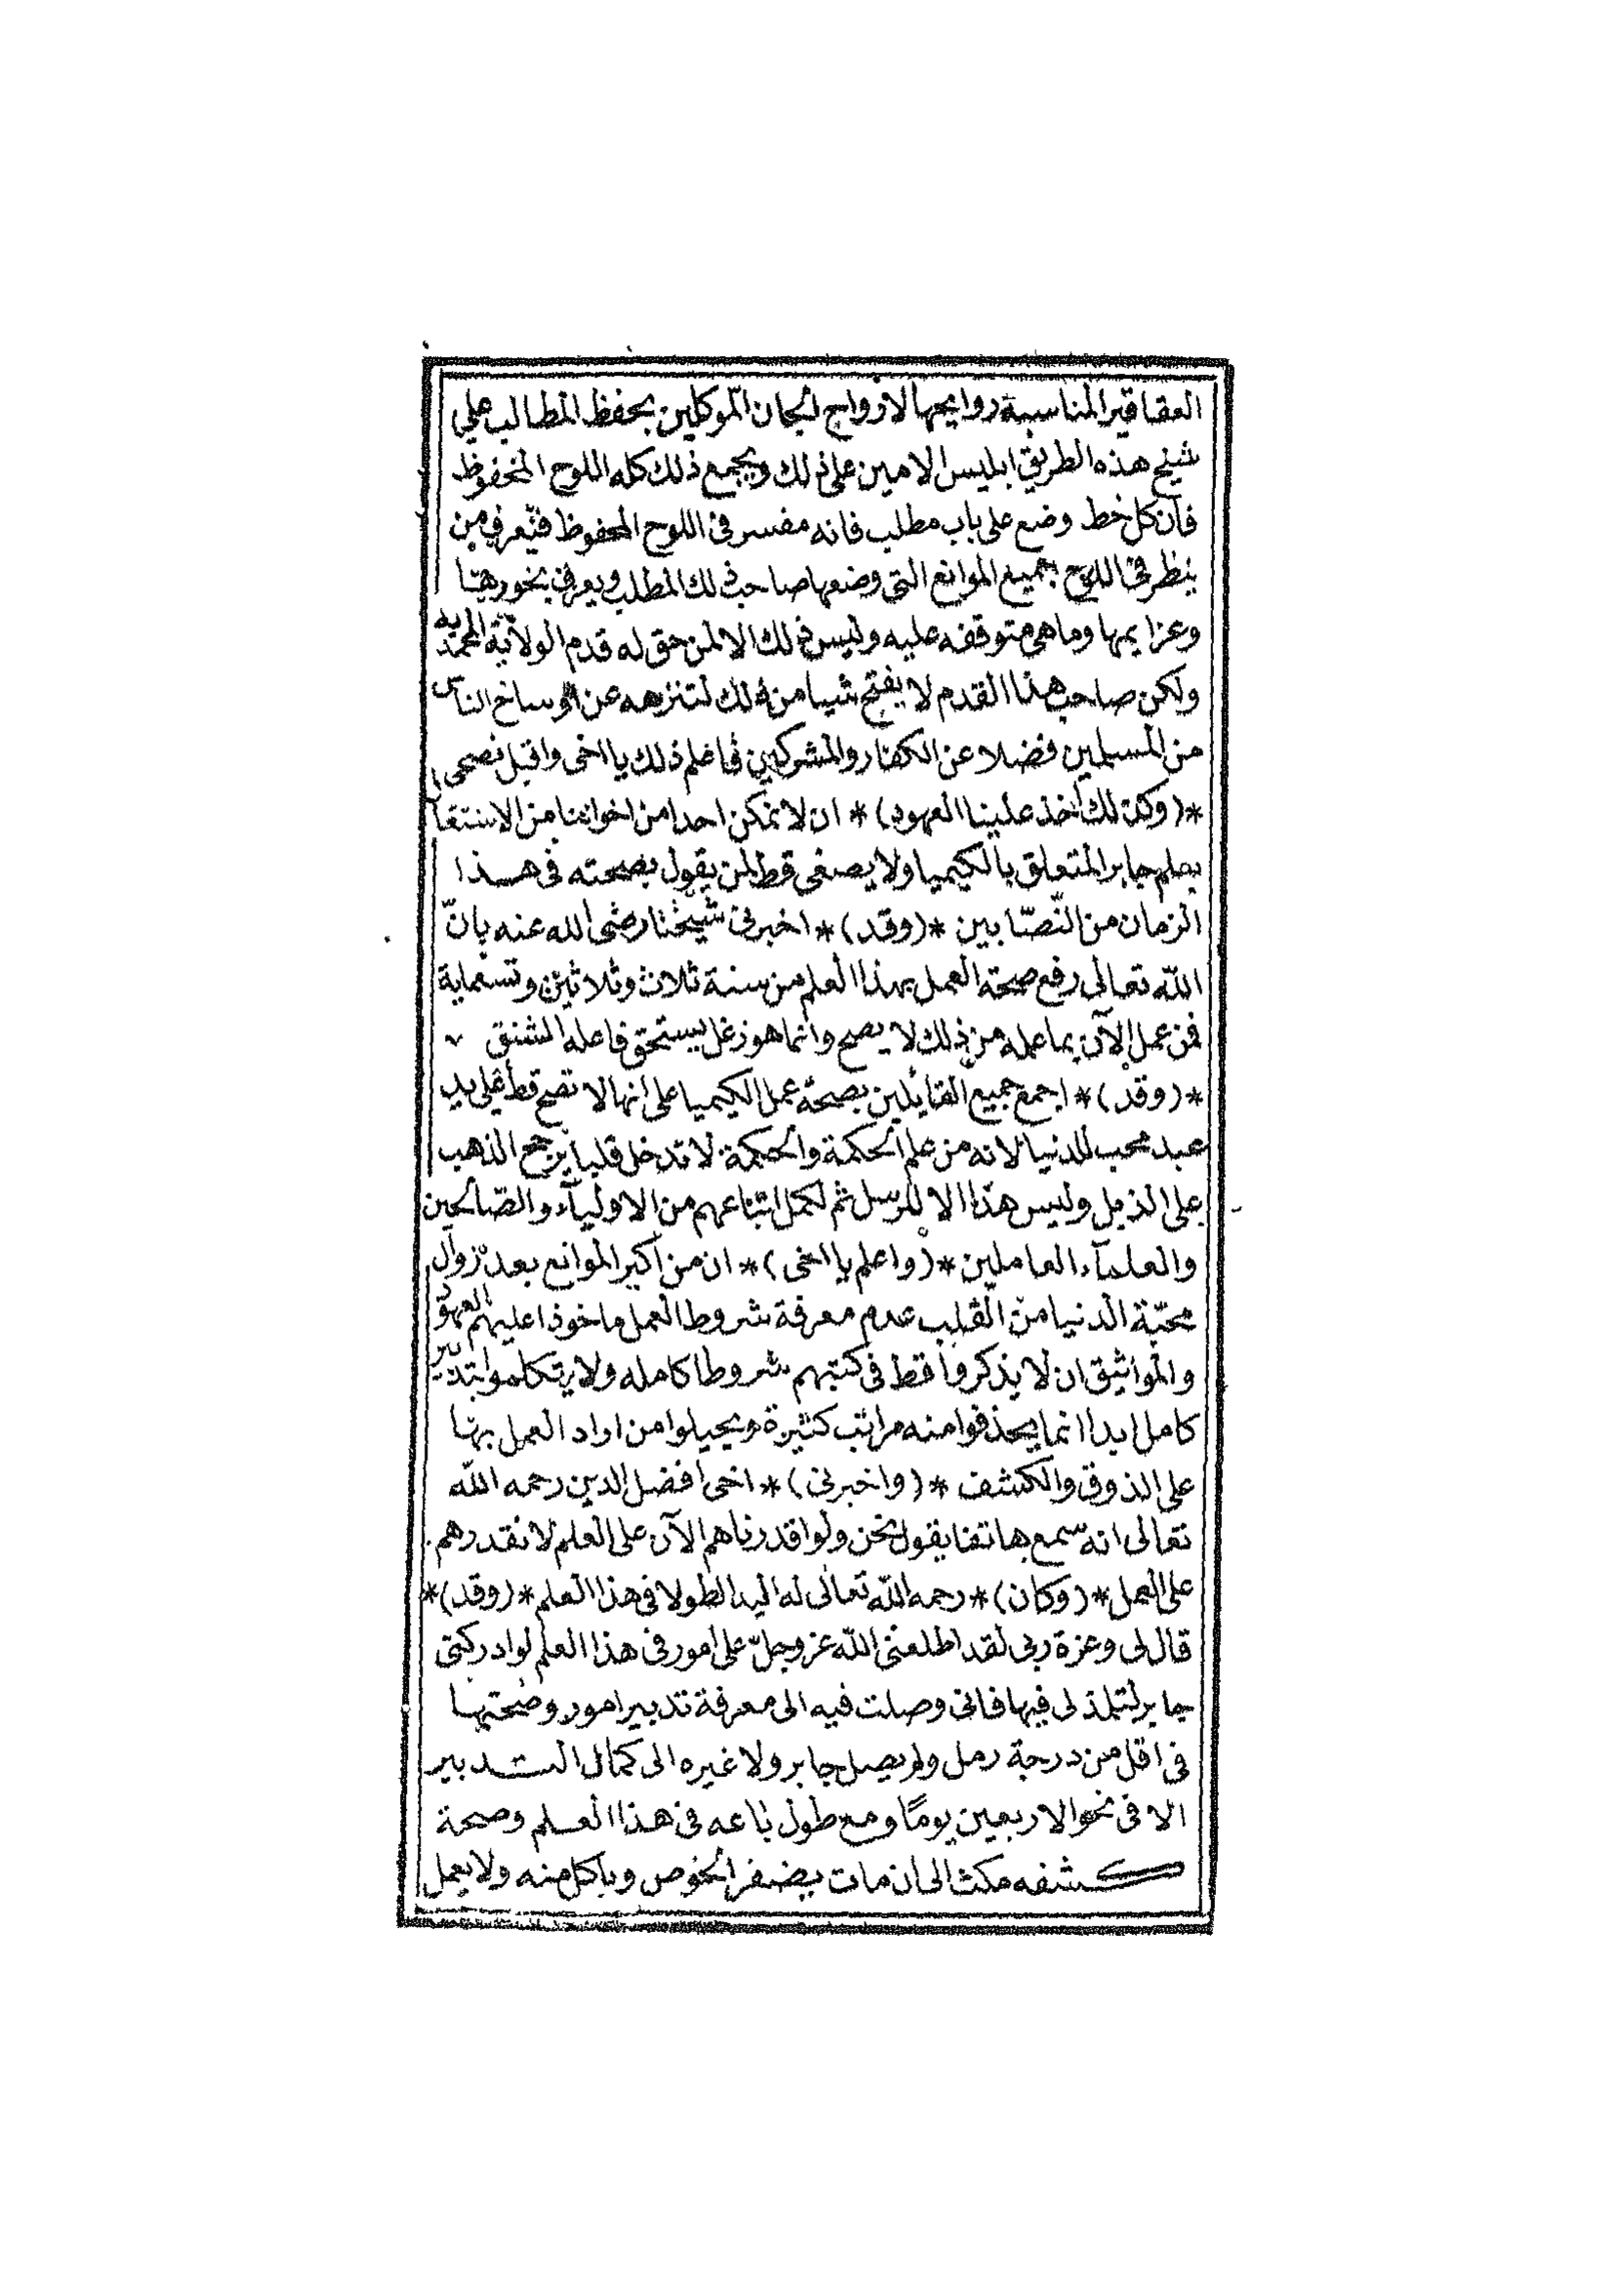 العقاقير المناسبة روايحها لارواح الجان الموكلين بحفظ المطالب على
شيخ هذه الطريق ابليس الامين على ذلك ويجمع ذلك كله اللوح المحفوظ
فان كل خط وضع على باب مطلب فانه مفسر فى اللوح المحفوظ فيعرف من
ينظر فى اللوح جميع الموانع التى وضعها صاحب ذلك المطلب ويعرف بخورها
وعزايمها وما هى متوقفه عليه وليس ذلك الا لمن حق له قدم الولاية المحمديه
ولكن صاحب هذا القدم لا يفتح شيا من ذلك لتنزهه عن اوساخ الناس
من المسلمين فضلا عن الكفار والمشركين فاعلم ذلك يا اخى واقبل نصحى
*(وكذلك اخذ علينا العهود)* ان لا نمكن احدا من اخواننا من الاشتغال
بعلم جابر المتعلق بالكيميا ولا يصغى قط لمن يقول بصحته فى هذا
الزمان من النّصّابين *(وقد)* اخبرنى شيخنا رضى الله عنه بانّ
الله تعالى رفع صحة العمل بهذا العلم من سنة ثلاث وثلاثين وتسعماية
فمن عمل الآن بما عمله من ذلك لا يصح وانما هو زغل يستحق فاعله الشنق
*(وقد)* اجمع جميع القايلين بصحة عمل الكيميا على انها لا تصح قط على يد
عبد محب للدنيا لانه من علم الحكمة والحكمة لا تدخل قلبا يرجح الذهب
على الزبل وليس هذا الا للرسل ثم لكمل اتباعهم من الاوليآء والصّالحين
والعلمآء العاملين *(واعلم يا اخى)* ان من اكبر الموانع بعد زوال
محبّة الدنيا من القلب عدم معرفة شروط العمل ماخوذا عليهم العهود
والمواثيق ان لا يذكروا قط فى كتبهم شروطا كامله ولا يتكلموا بتدبير
كامل ابدا انما يحذفوا منه مراتب كثيرة ويحيلوا من اراد العمل بها
على الذوق والكشف *(واخبرنى)* اخى افضل الدين رحمه الله
تعالى انه سمع هاتفا يقول نحن ولو اقدرناهم الآن على العلم لا نقدرهم
على العمل *(وكان)* رحمه الله تعالى له اليد الطولا فى هذا العلم *(وقد)*
قال لى وعزة ربى لقد اطلعنى الله عز وجلّ على امور فى هذا العلم لو ادركنى
جابر لتلمذ لى فيها فانى وصلت فيه الى معرفة تدبير امور وصحتها
فى اقل من درجة رمل ولم يصل جابر ولا غيره الى كمال التدبير
الا فى نحو الاربعين يومًا ومع طول باعه فى هذا العلم وصحة
كشفه مكث الى ان مات يضفر الخوص وياكل منه ولا يعمل